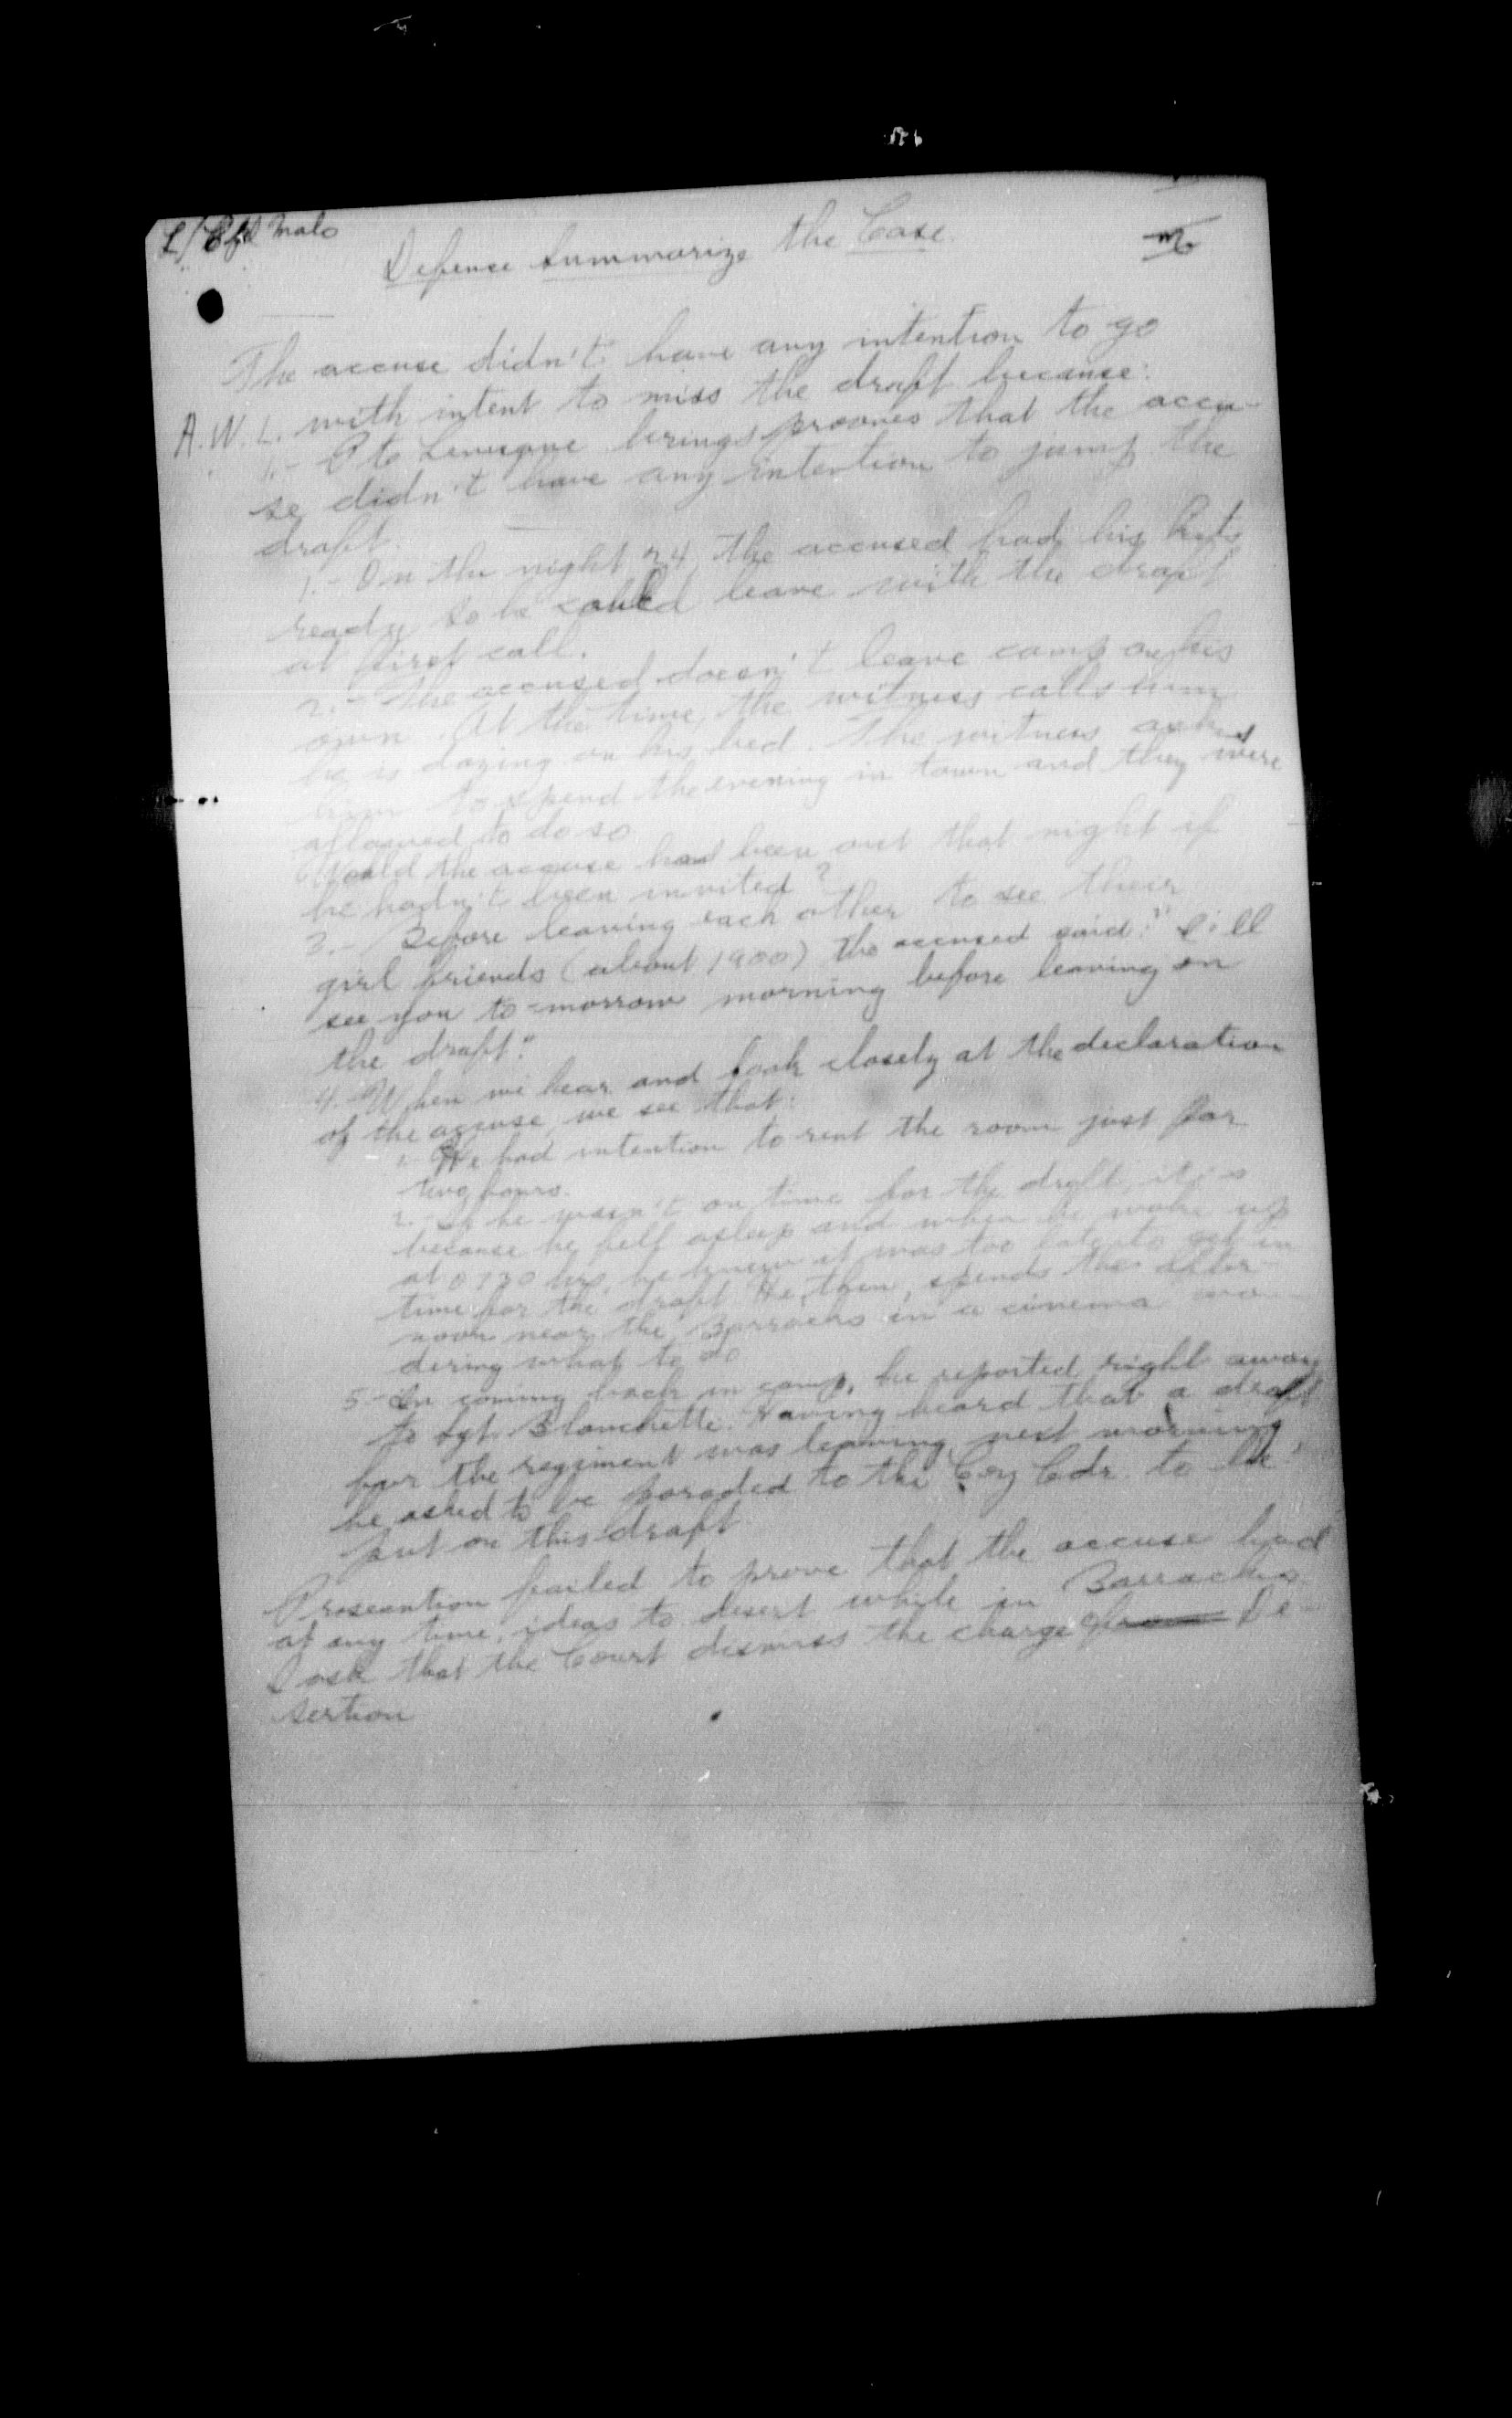 L/Cpl Malo
Defense Summarize the Case
The accuse didn't have any intention to go
A.W.L. with intent to miss the draft because:
1.- Pte brings prooves that the accu-
se didn't have any intention to jump the
draft.
1.- On the night 24, the accused had his kits
ready so he could leave with the draft
at first call.
2.- The accused doesn't leave camp on his
own. At the time, the witness calls him
he is dozing on his bed. The witness asked
him to spend the evening in town and they were
allowed to do so
Would the accuse had been out that night if
he hadn't been invited?
3.- Before leaving each other to see their
girl friends (about 1900) the accused said: "I'll
see you to-morrow morning before leaving on
the draft."
4.- When we hear and look closely at the declaration
of the accuse, we see that:
1- He had intention to rent the room just for
two hours.
2- If he wasn't on time for the draft, it's
because he fell asleep and when he woke up
at 0730 hrs, he knew it was too late to get in
time for the draft. He, then, spends the after-
noon near the Barracks in a cinema won-
dering what to do
5- In coming back in camp, he reported right away
to Sgt. Blanchette. Having heard that a draft
for the regiment was leaving next morning,
he asked to be paraded to the Coy Cdr. to be
put on this draft
Prosecution failed to prove that the accuse had
at any time, ideas to desert while in Barracks
I ask that the Court dismiss the charge of De-
sertion